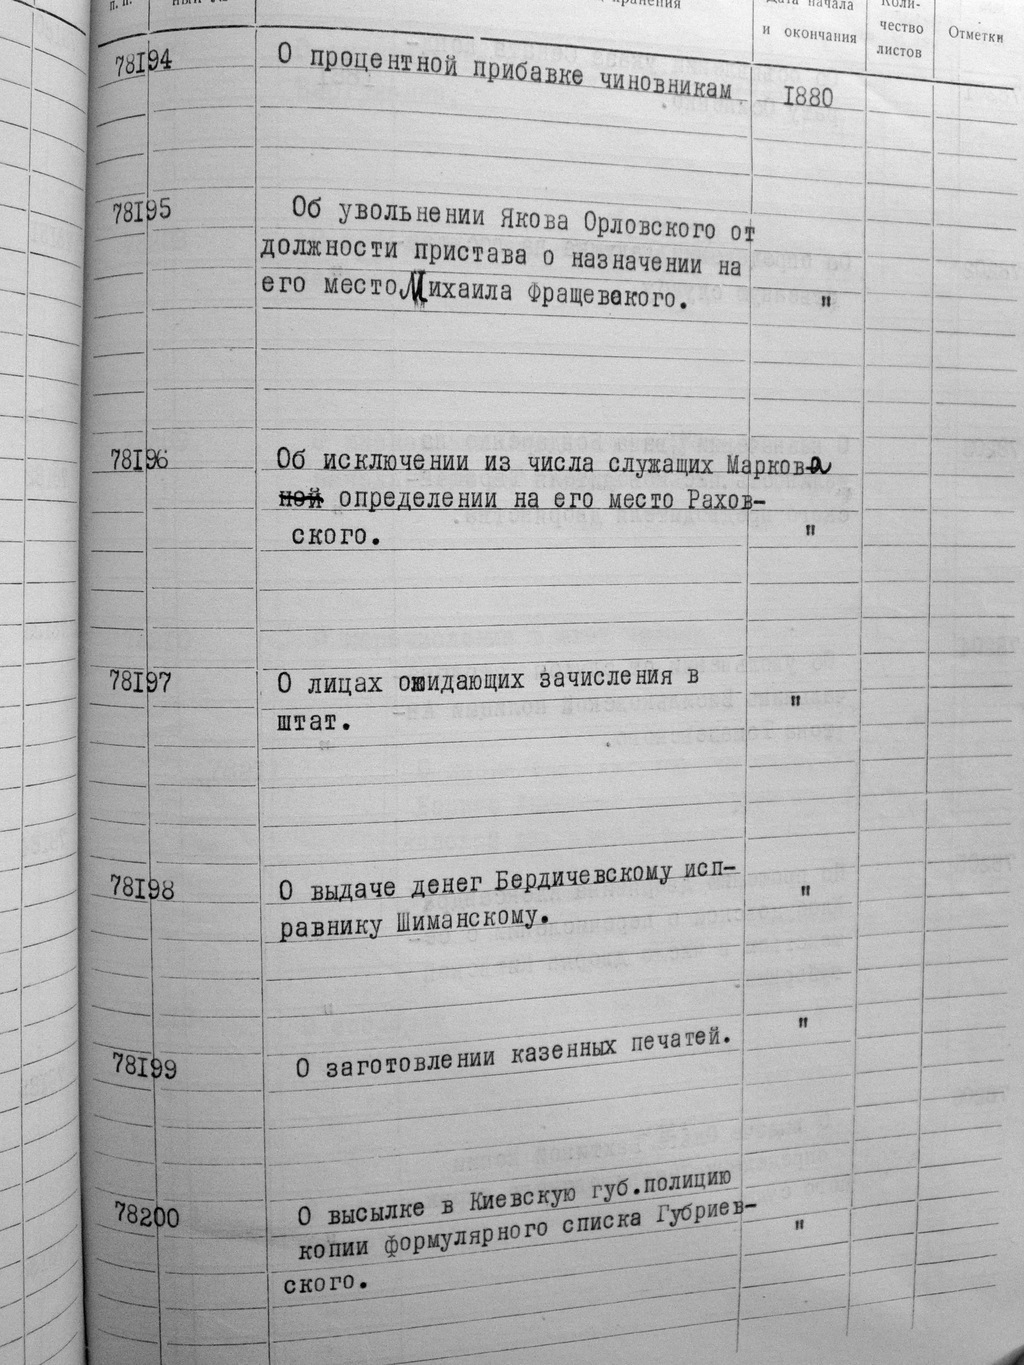 Дата начала и окончания
Количество листов
Отметки
78I94 О процентной прибавке чиновникам I880
78I95 Об увольнении Якова Орловского от
должности пристава о назначении на
его место Михаила Фращевского. "
78I96 Об исключении из числа служащих Маркова
ной определении на его место Рахов-
ского. "
78I97 О лицах ожидающих зачисления в
штат. "
78I98 О выдаче денег Бердичевскому исп-
равнику Шиманскому. "
78I99 О заготовлении казенных печатей. "
78200 О высылке в Киевскую губ.полицию
копии формулярного списка Губриев-
ского. "